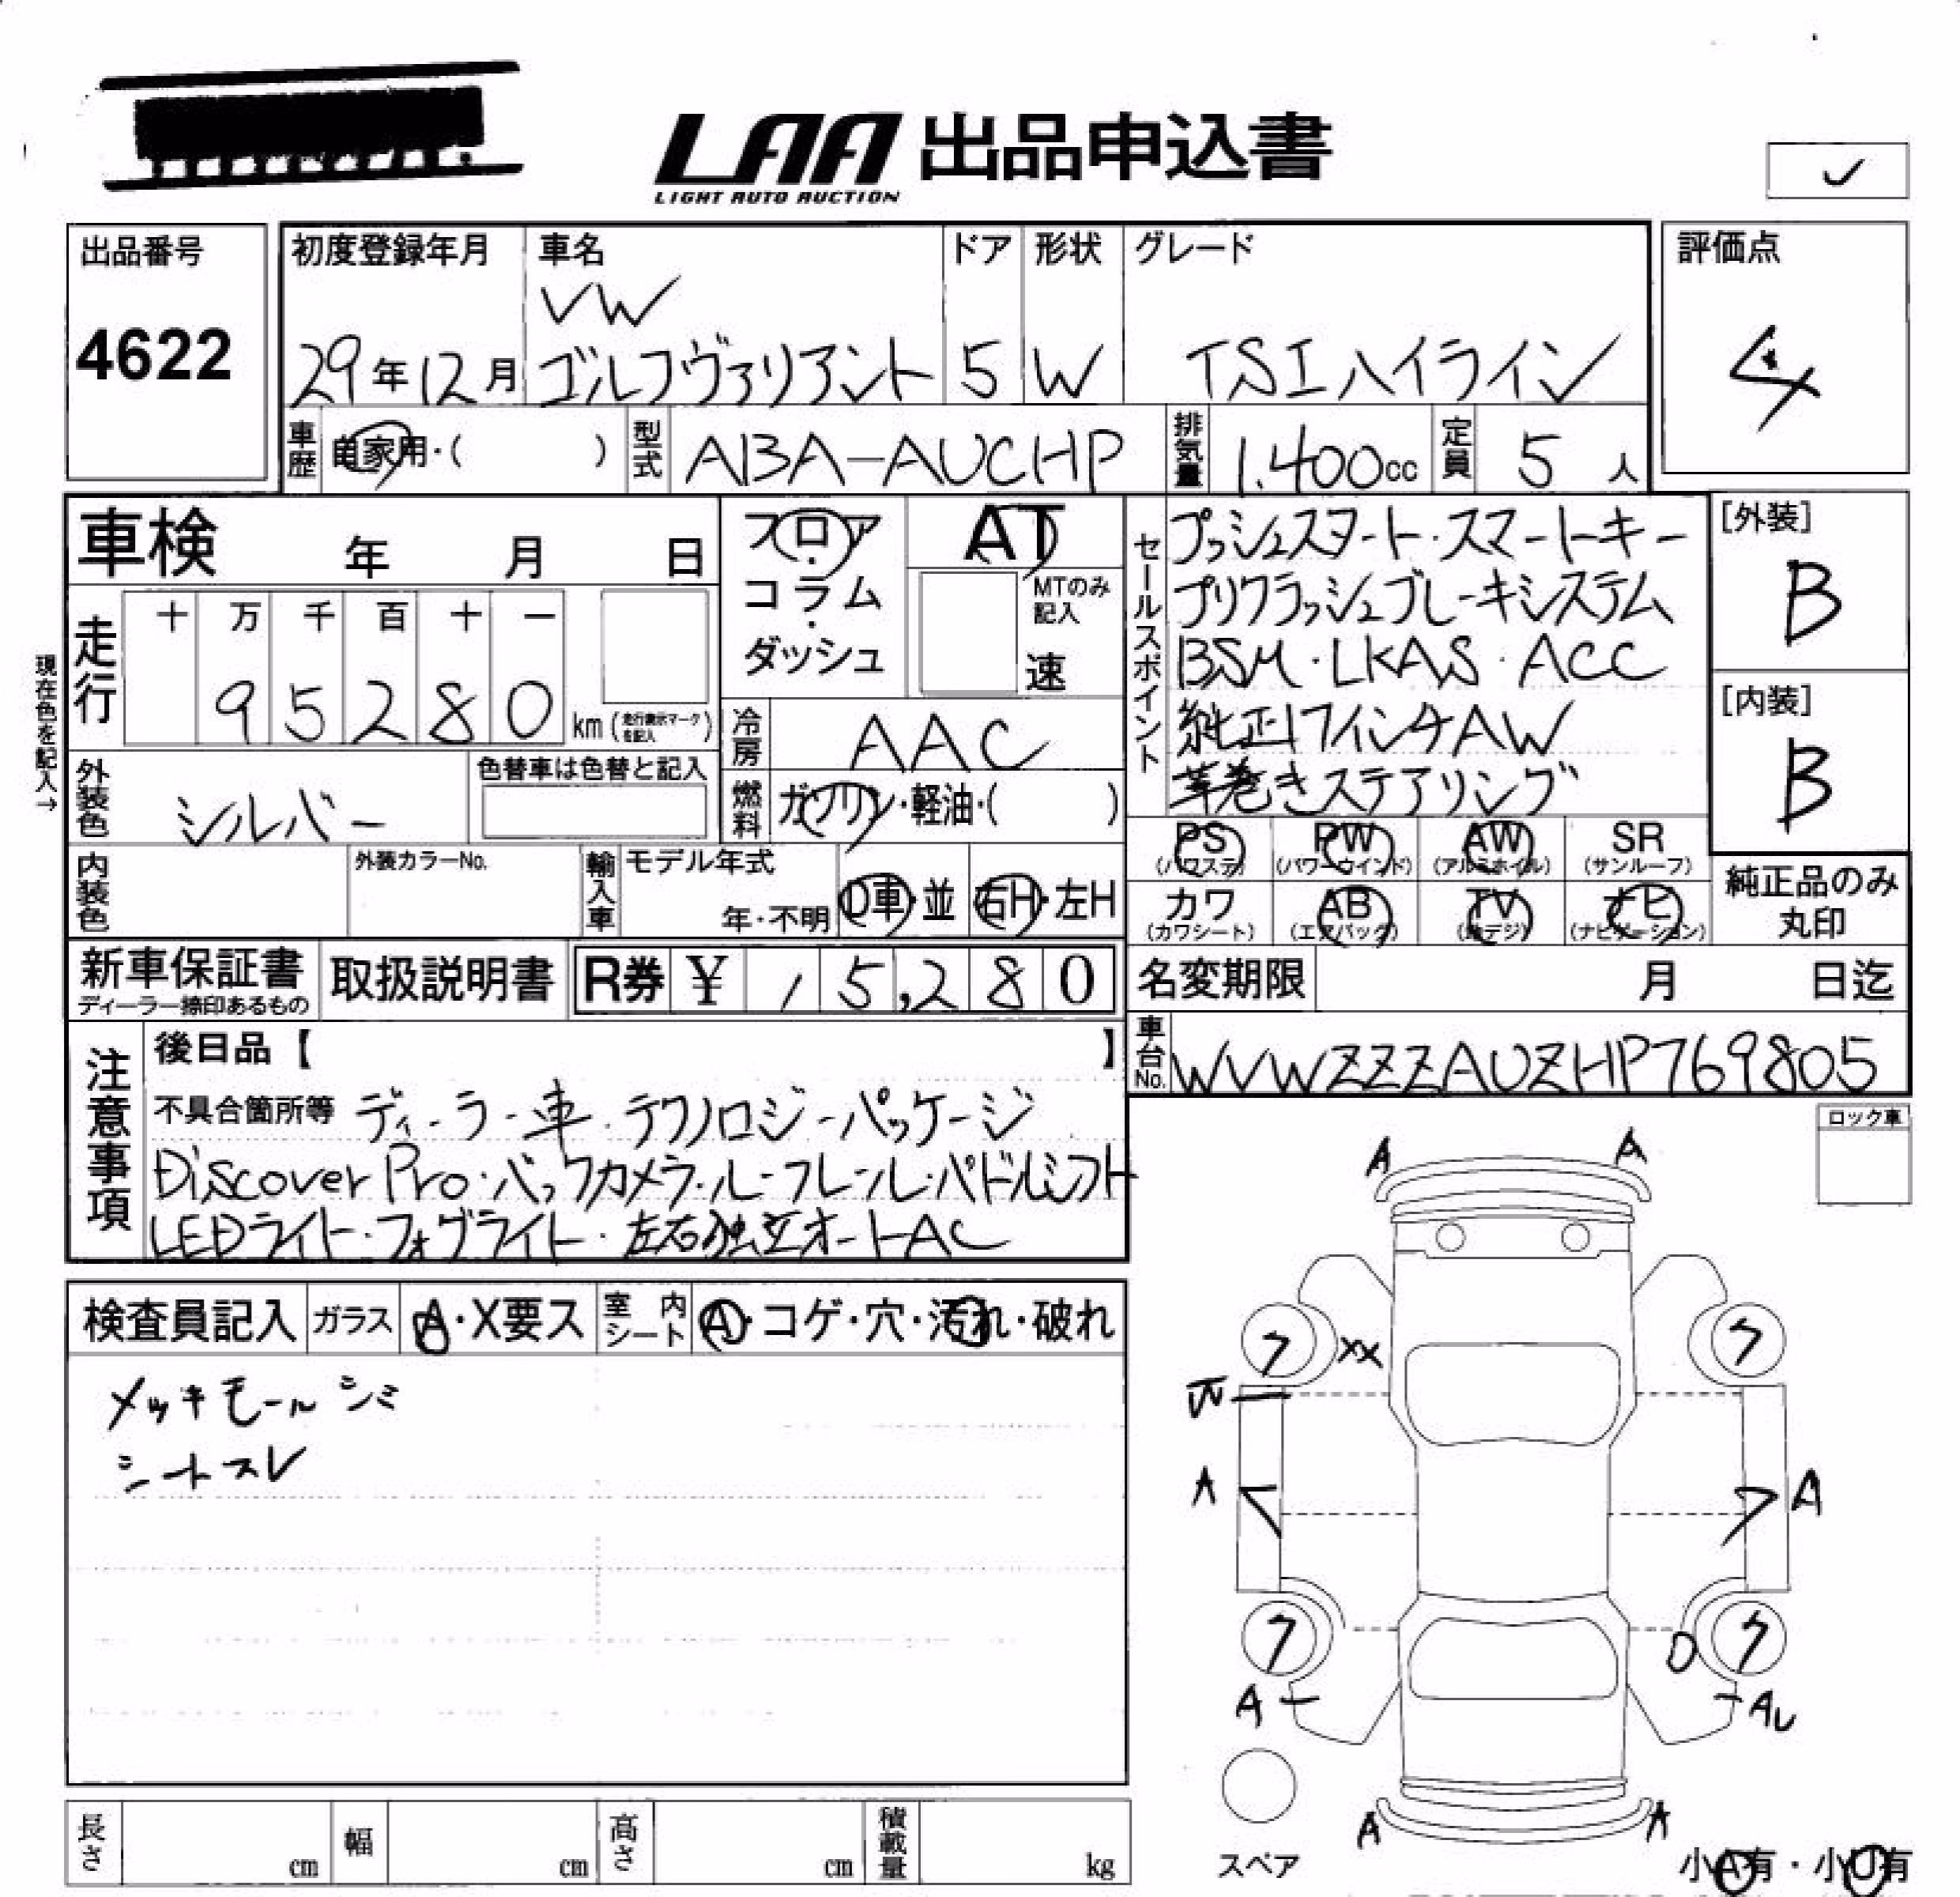 LAA 出品申込書
LIGHT AUTO AUCTION
出品番号
4622
初度登録年月
29年12月
車名
VW
ゴルフヴァリアント
ドア
5
形状
W
グレード
TSIハイライン
評価点
4
車歴 自家用・( )
型式 ABA-AUCHP
排気量 1.400cc
定員 5人
車検 年 月 日
フロア・コラム・ダッシュ
AT
MTのみ記入
速
走行 十 万 千 百 十 一
95280 km (走行表示マークを記入)
現在色を記入→
冷房 AAC
外装色 シルバー
色替車は色替と記入
燃料 ガソリン・軽油・( )
内装色
外装カラーNo.
輸入車 モデル年式
年・不明
D車・並 右H・左H
セールスポイント
プッシュスタート・スマートキー
プリクラッシュブレーキシステム
BSM・LKAS・ACC
純正17インチAW
革巻きステアリング
[外装]
B
[内装]
B
PS (パワステ)
PW (パワーウインド)
AW (アルミホイル)
SR (サンルーフ)
カワ (カワシート)
AB (エアバック)
TV (地デジ)
ナビ (ナビゲーション)
純正品のみ
丸印
新車保証書
ディーラー捺印あるもの
取扱説明書
R券 ¥ 15,280
名変期限 月 日迄
車台No. WVWZZZAUZHP769805
注意事項
後日品【 】
不具合箇所等 ディーラー車・テクノロジーパッケージ
Discover Pro・バックカメラ・ルーフレール・パドルシフト
LEDライト・フォグライト・左右独立オートAC
ロック車
検査員記入 ガラス A・X要ス 室内シート A・コゲ・穴・汚れ・破れ
メッキモールシミ
シートスレ
A A
7 XX 7
A A
7 D 7
A AU
A A
スペア
小A有・小U有
長さ cm 幅 cm 高さ cm 積載量 kg